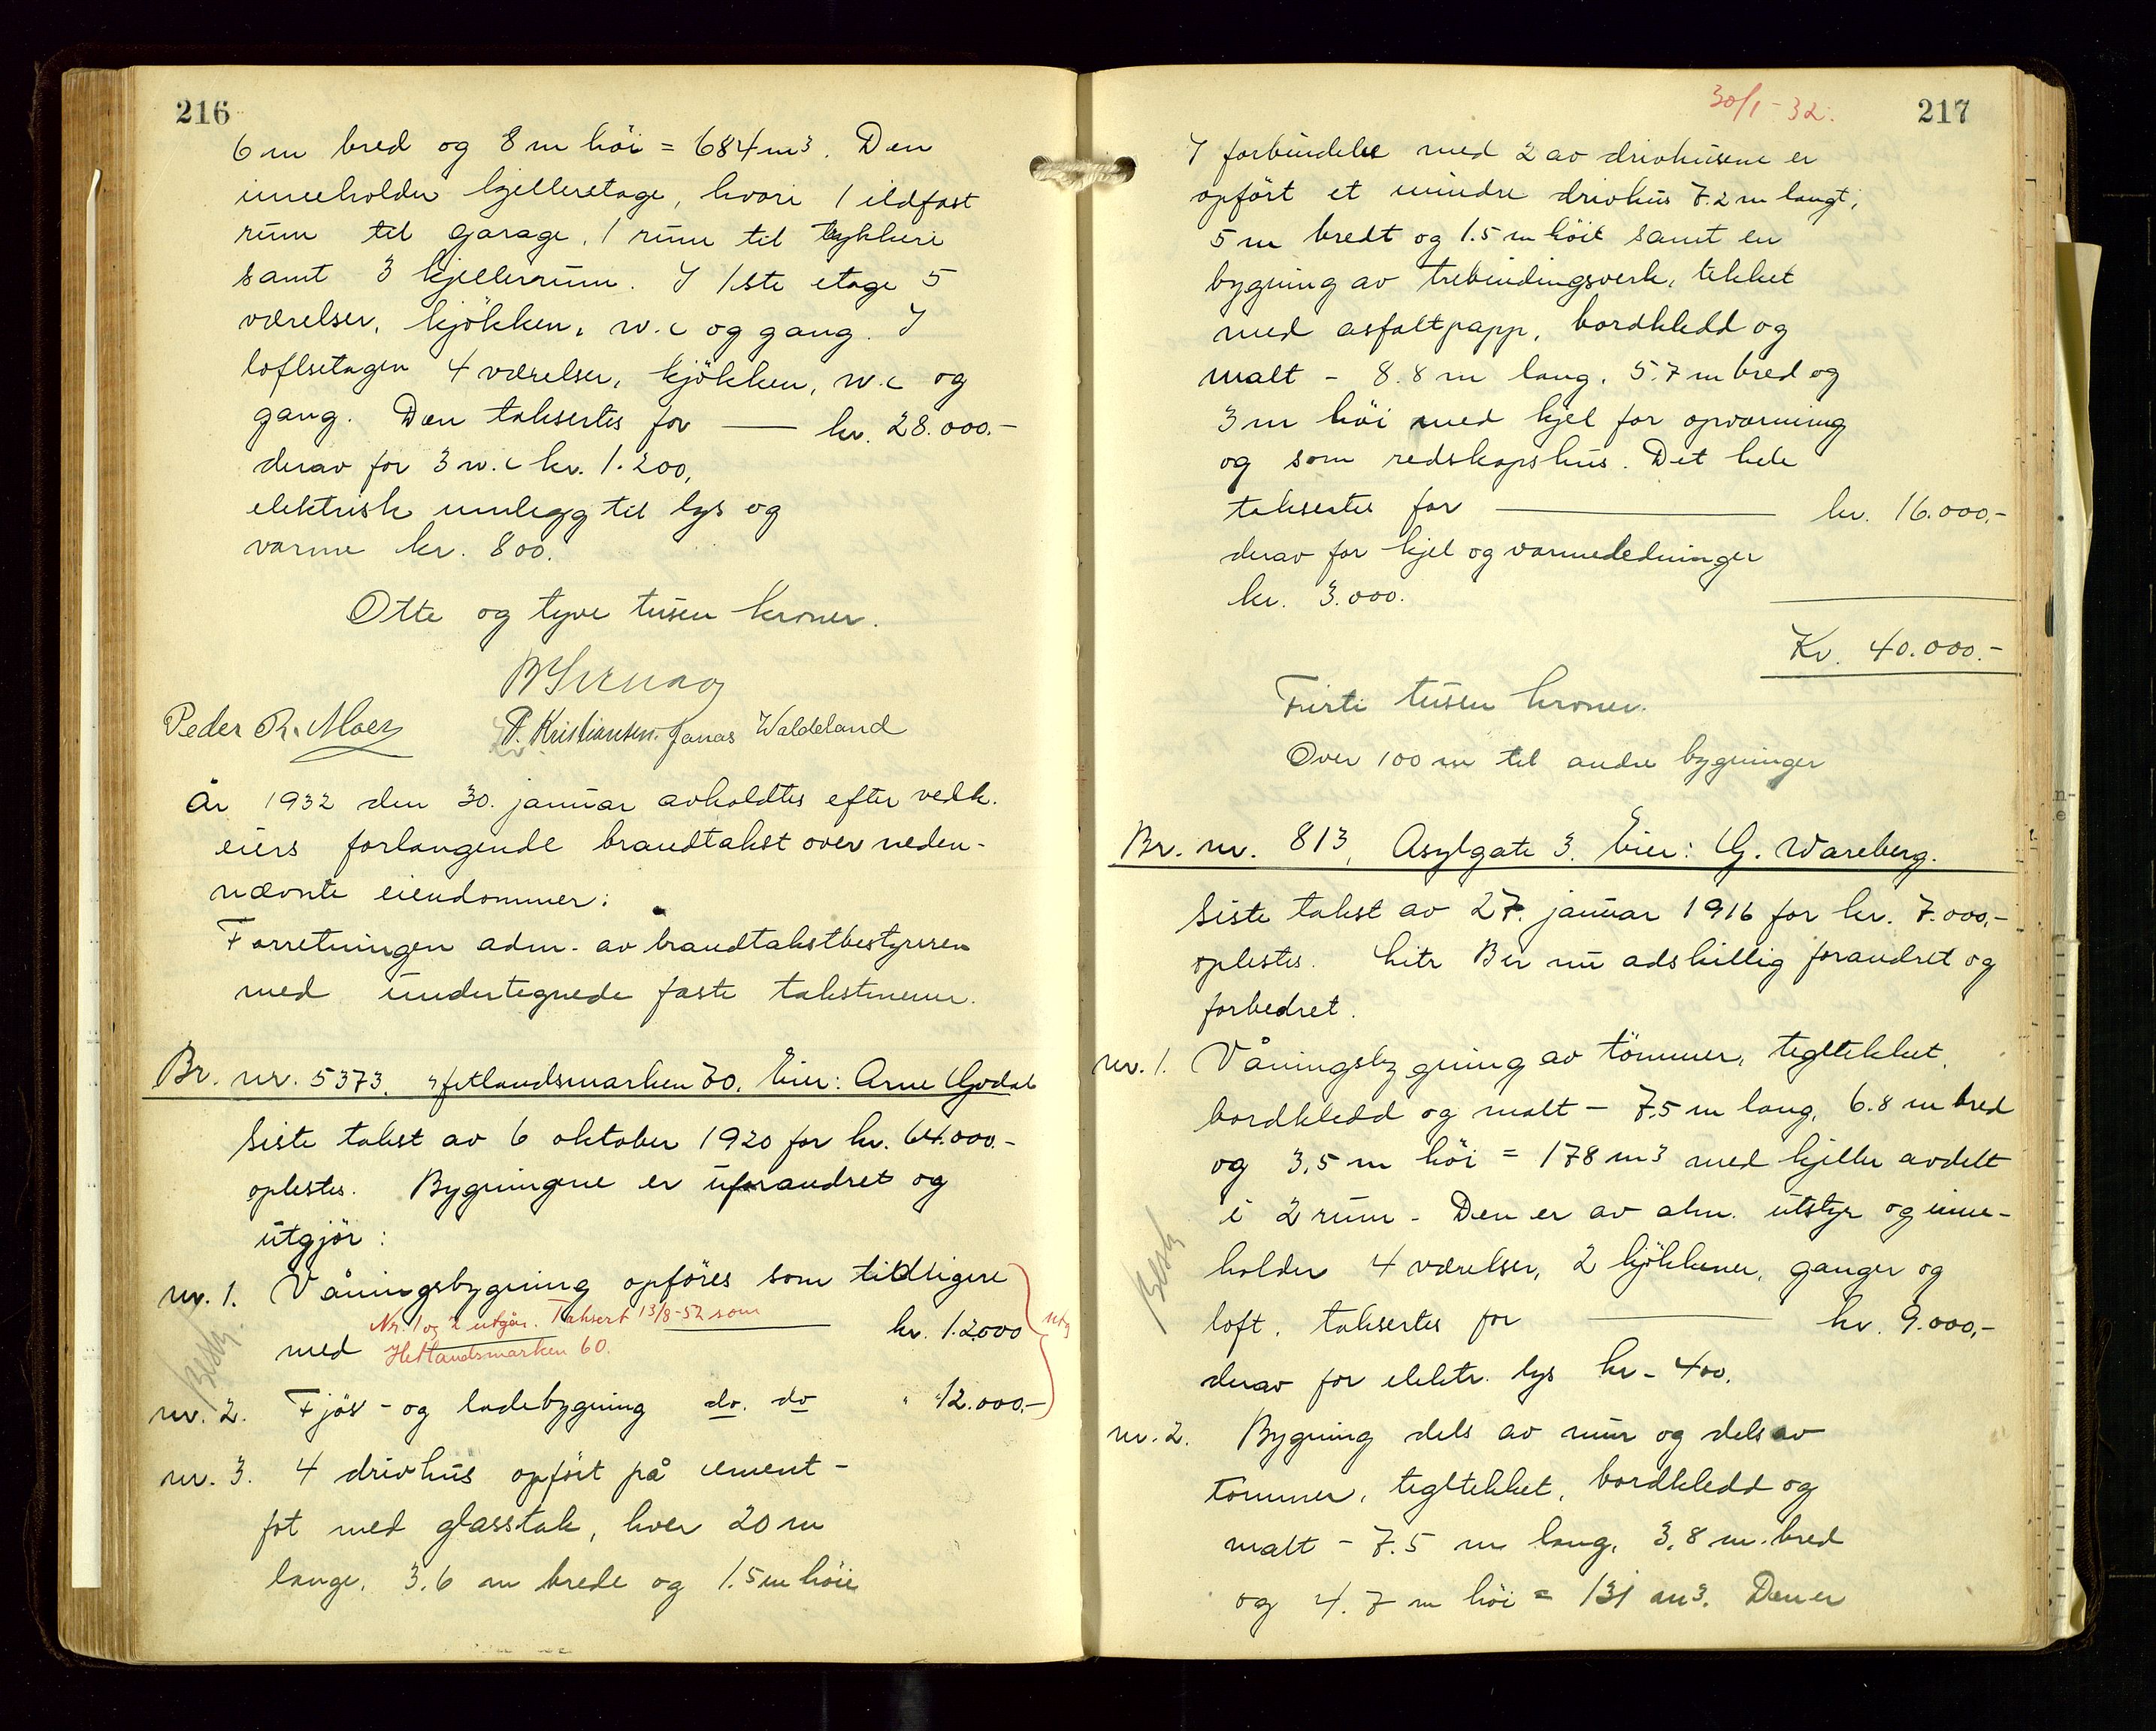 216
6 m bred og 8 m höi = 684 m3. Den
inneholder kjelleretage, hvori 1 ildfast
rum til garage, 1 rum til trykkeri
samt 3 kjellerrum. I 1ste etage 5
værelser, kjökken, w.c og gang. I
loftsetagen 4 værelser, kjökken, w.c og
gang. Den taksertes for — kr. 28.000.-
derav for 3 w.c kr. 1.200,
elektrisk innlegg til lys og
varme kr. 800.
Otte og tyve tusen kroner.
Peder R. Moez P. Kristiansen. Jonas Waldeland
År 1932 den 30. januar avholdtes efter vedk.
eiers forlangende brandtakst over neden-
nævnte eiendommer:
Forretningen adm. av brandtakstbestyreren
med undertegnede faste takstmenn.
Br. nr. 5373, Hetlandsmarken 70. Eier: Arne Godal
Siste takst av 6 oktober 1920 for kr. 64.000.-
oplestes. Bygningene er uforandret og
utgjör:
nr. 1. Våningsbygning opföres som tidligere
Nr. 1 og 2 utgår. Taksert 13/8-52 som
med — kr. 12000
Hetlandsmarken 60.
utg
Besk.
nr. 2. Fjös- og ladebygning do. do " 12.000.-
nr. 3. 4 drivhus opfört på cement-
fot med glasstak, hver 20 m
lange, 3.6 m brede og 1.5 m höie
30/1-32.
217
I forbindelse med 2 av drivhusene er
opfört et mindre drivhus 7.2 m langt,
5 m bredt og 1.5 m höit samt en
bygning av trebindingsverk, tekket
med asfaltpapp, bordkledd og
malt - 8.8 m lang, 5.7 m bred og
3 m höi med kjel for opvarming
og som redskapshus. Det hele
taksertes for — kr. 16.000.-
derav for kjel og varmeledninger
kr. 3.000.
Kr. 40.000.-
Firti tusen kroner.
Over 100 m til andre bygninger
Br. nr. 813, Asylgate 3. Eier: G. Wareberg.
Siste takst av 27. januar 1916 for kr. 7.000.-
oplestes. Litr B er nu adskillig forandret og
forbedret.
nr. 1. Våningsbygning av tömmer, tegltekket,
bordkledd og malt - 7.5 m lang, 6.8 m bred
og 3.5 m höi = 178 m3 med kjeller avdelt
i 2 rum. Den er av alm. utstyr og inne-
Besk
holder 4 værelser, 2 kjökkener, ganger og
loft. taksertes for — kr. 9.000,-
derav for elektr. lys kr. 400.
nr. 2. Bygning dels av mur og dels av
tömmer, tegltekket, bordkledd og
malt - 7.5 m lang, 3.8 m. bred
og 4.7 m höi = 131 m3. Den er